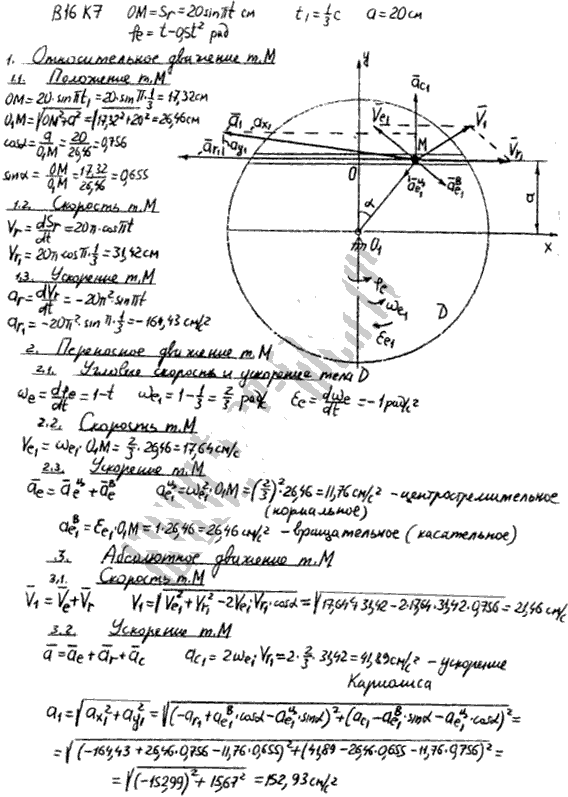 В16 К7 OM=Sr=20sinπt см t₁=⅓c a=20см
φe=t-0,5t² рад
1. Относительное движение т.М
1.1. Положение т.М
OM=20·sinπt₁=20·sinπ·⅓=17,32см
O₁M=√(OM²+a²)=√(17,32²+20²)=26,46см
cosα=a/O₁M=20/26,46=0,756
sinα=OM/O₁M=17,32/26,46=0,655
1.2. Скорость т.М
Vr=dSr/dt=20π·cosπt
Vr₁=20π·cosπ·⅓=31,42см
1.3. Ускорение т.М
ar=dVr/dt=-20π²sinπt
ar₁=-20π²·sinπ·⅓=-164,43 см/с²
y
āc₁
V̄e₁
V̄₁
ā₁
ax₁
M
ār₁
ay₁
V̄r₁
O
āe₁ᶣ
āe₁ᴮ
a
α
O₁
x
φe
ωe₁
D
εe₁
2. Переносное движение т.М
2.1. Угловые скорость и ускорение тела D
ωe=dφe/dt=1-t ωe₁=1-⅓=⅔ рад/с εe=dωe/dt=-1рад/с²
2.2. Скорость т.М
Ve₁=ωe₁·O₁M=⅔·26,46=17,64см/с
2.3. Ускорение т.М
āe=āeц+āeв ae₁ц=ωe₁²·O₁M=(⅔)²·26,46=11,76см/с² -центростремительное
(нормальное)
ae₁в=εe₁·O₁M=1·26,46=26,46 см/с² -вращательное (касательное)
3. Абсолютное движение т.М
3.1. Скорость т.М
V̄₁=V̄e+V̄r V₁=√(Ve₁²+Vr₁²-2Ve₁Vr₁·cosα)=√(17,64²+31,42²-2·17,64·31,42·0,756)=21,46 см/с
3.2. Ускорение т.М
ā=āe+ār+āc ac₁=2ωe₁Vr₁=2·⅔·31,42=41,89см/с² -ускорение
Кариолиса
a₁=√(ax₁²+ay₁²)=√((-ar₁+ae₁в·cosα-ae₁ц·sinα)²+(ac₁-ae₁в·sinα-ae₁ц·cosα)²)=
=√((-164,43+26,46·0,756-11,76·0,655)²+(41,89-26,46·0,655-11,76·0,756)²)=
=√((-152,99)²+15,67²)=152,93 см/с²